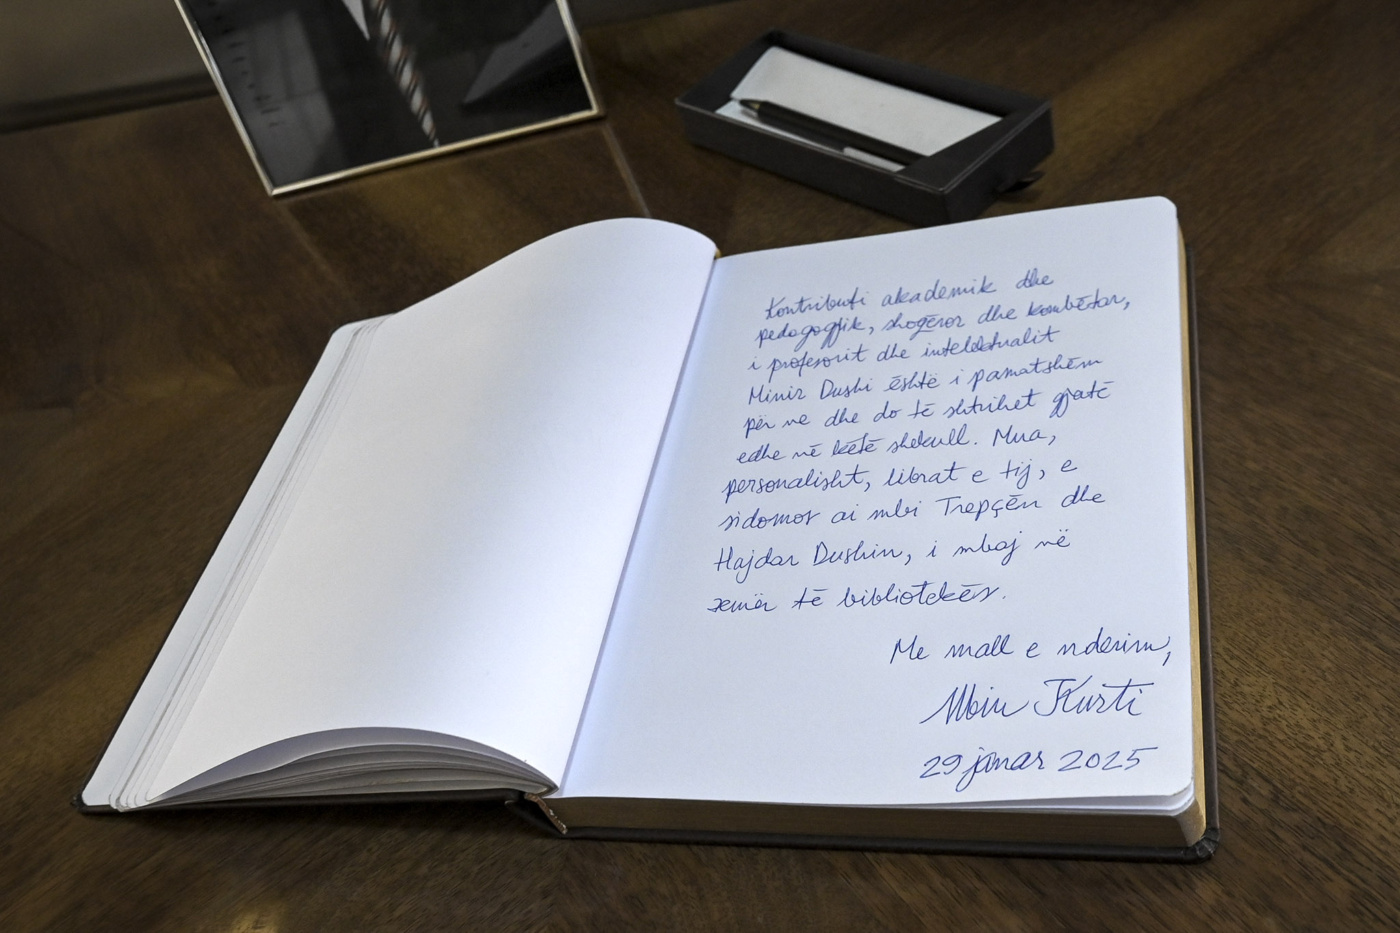 Kontributi akademik dhe
pedagogjik, shoqëror dhe kombëtar,
i profesorit dhe intelektualit
Minir Dushi është i pamatshëm
për ne dhe do të shtrihet gjatë
edhe në këtë shekull. Mua,
personalisht, librat e tij, e
sidomos ai mbi Trepçën dhe
Hajdar Dushin, i mbaj në
zemër të bibliotekës.
Me mall e nderim,
Albin Kurti
29 janar 2025